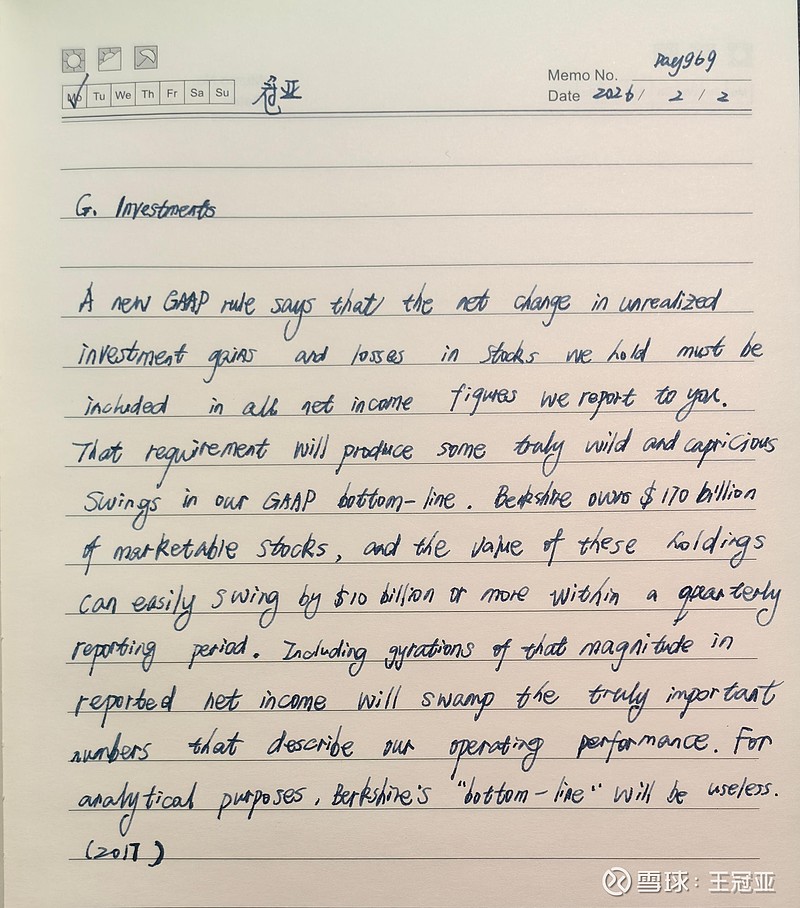 Memo No. Day969
Mo Tu We Th Fr Sa Su 冠亚 Date 2026 / 2 / 2
G. Investments
A new GAAP rule says that the net change in unrealized
investment gains and losses in stocks we hold must be
included in all net income figures we report to you.
That requirement will produce some truly wild and capricious
swings in our GAAP bottom-line. Berkshire owns $170 billion
of marketable stocks, and the value of these holdings
can easily swing by $10 billion or more within a quarterly
reporting period. Including gyrations of that magnitude in
reported net income will swamp the truly important
numbers that describe our operating performance. For
analytical purposes, Berkshire's "bottom-line" will be useless.
(2017)
雪球：王冠亚